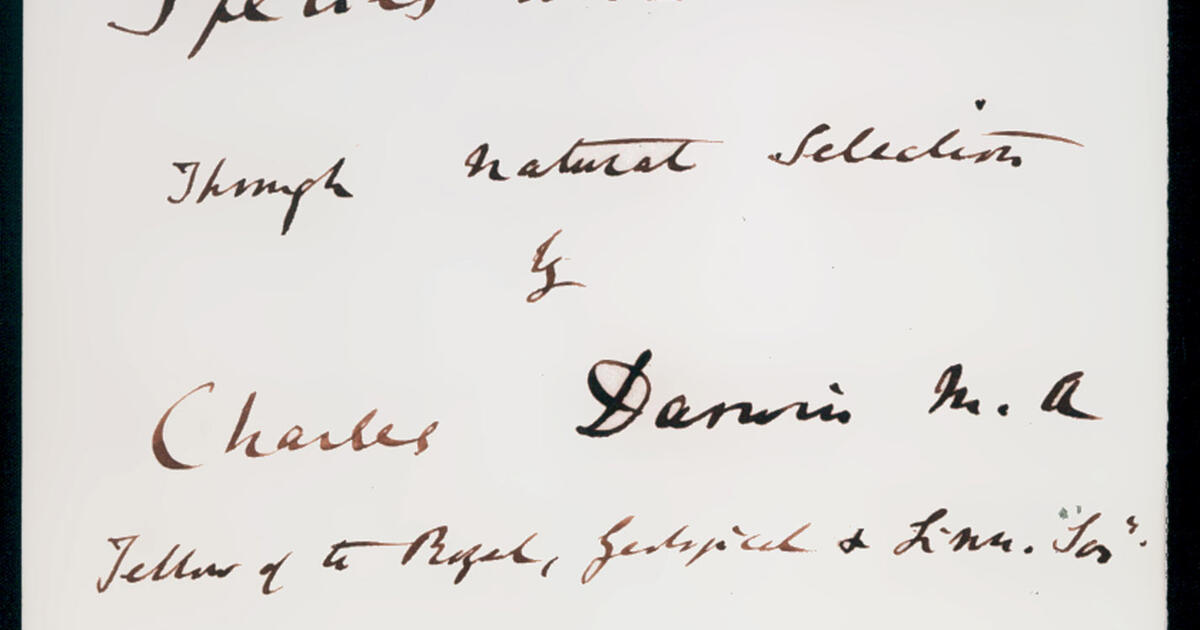 Species and
Through Natural Selection
by
Charles Darwin M. A
Fellow of the Royal, Geological & Linn. "Soc".